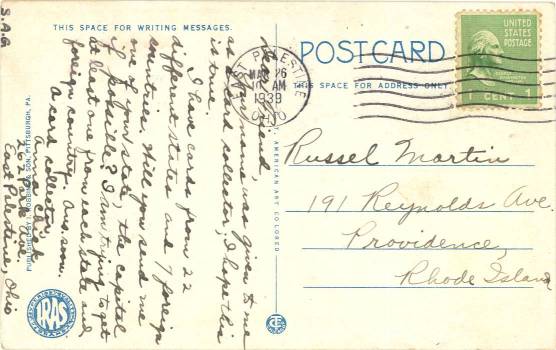 THIS SPACE FOR WRITING MESSAGES.
POSTCARD
THIS SPACE FOR ADDRESS ONLY
UNITED STATES POSTAGE
1 CENT 1
EAST PALESTINE
MAR 26
10 AM
1939
OHIO
Friend
Your name was given to me
as a card collector, I hope this
is true.
I have cards from 22
different states and 7 foreign
countries. Will you send me
one of your state, the capital
if possible? I am trying to get
at least one from each state and
foreign country. Ans. soon.
A card collector,
East Palestine, Ohio
S.A.G
Russel Martin
191 Reynolds Ave.
Providence,
Rhode Island
PUBLISHED BY I. ROBBINS & SON, PITTSBURGH, PA.
C.T. AMERICAN ART COLORED
IRAS